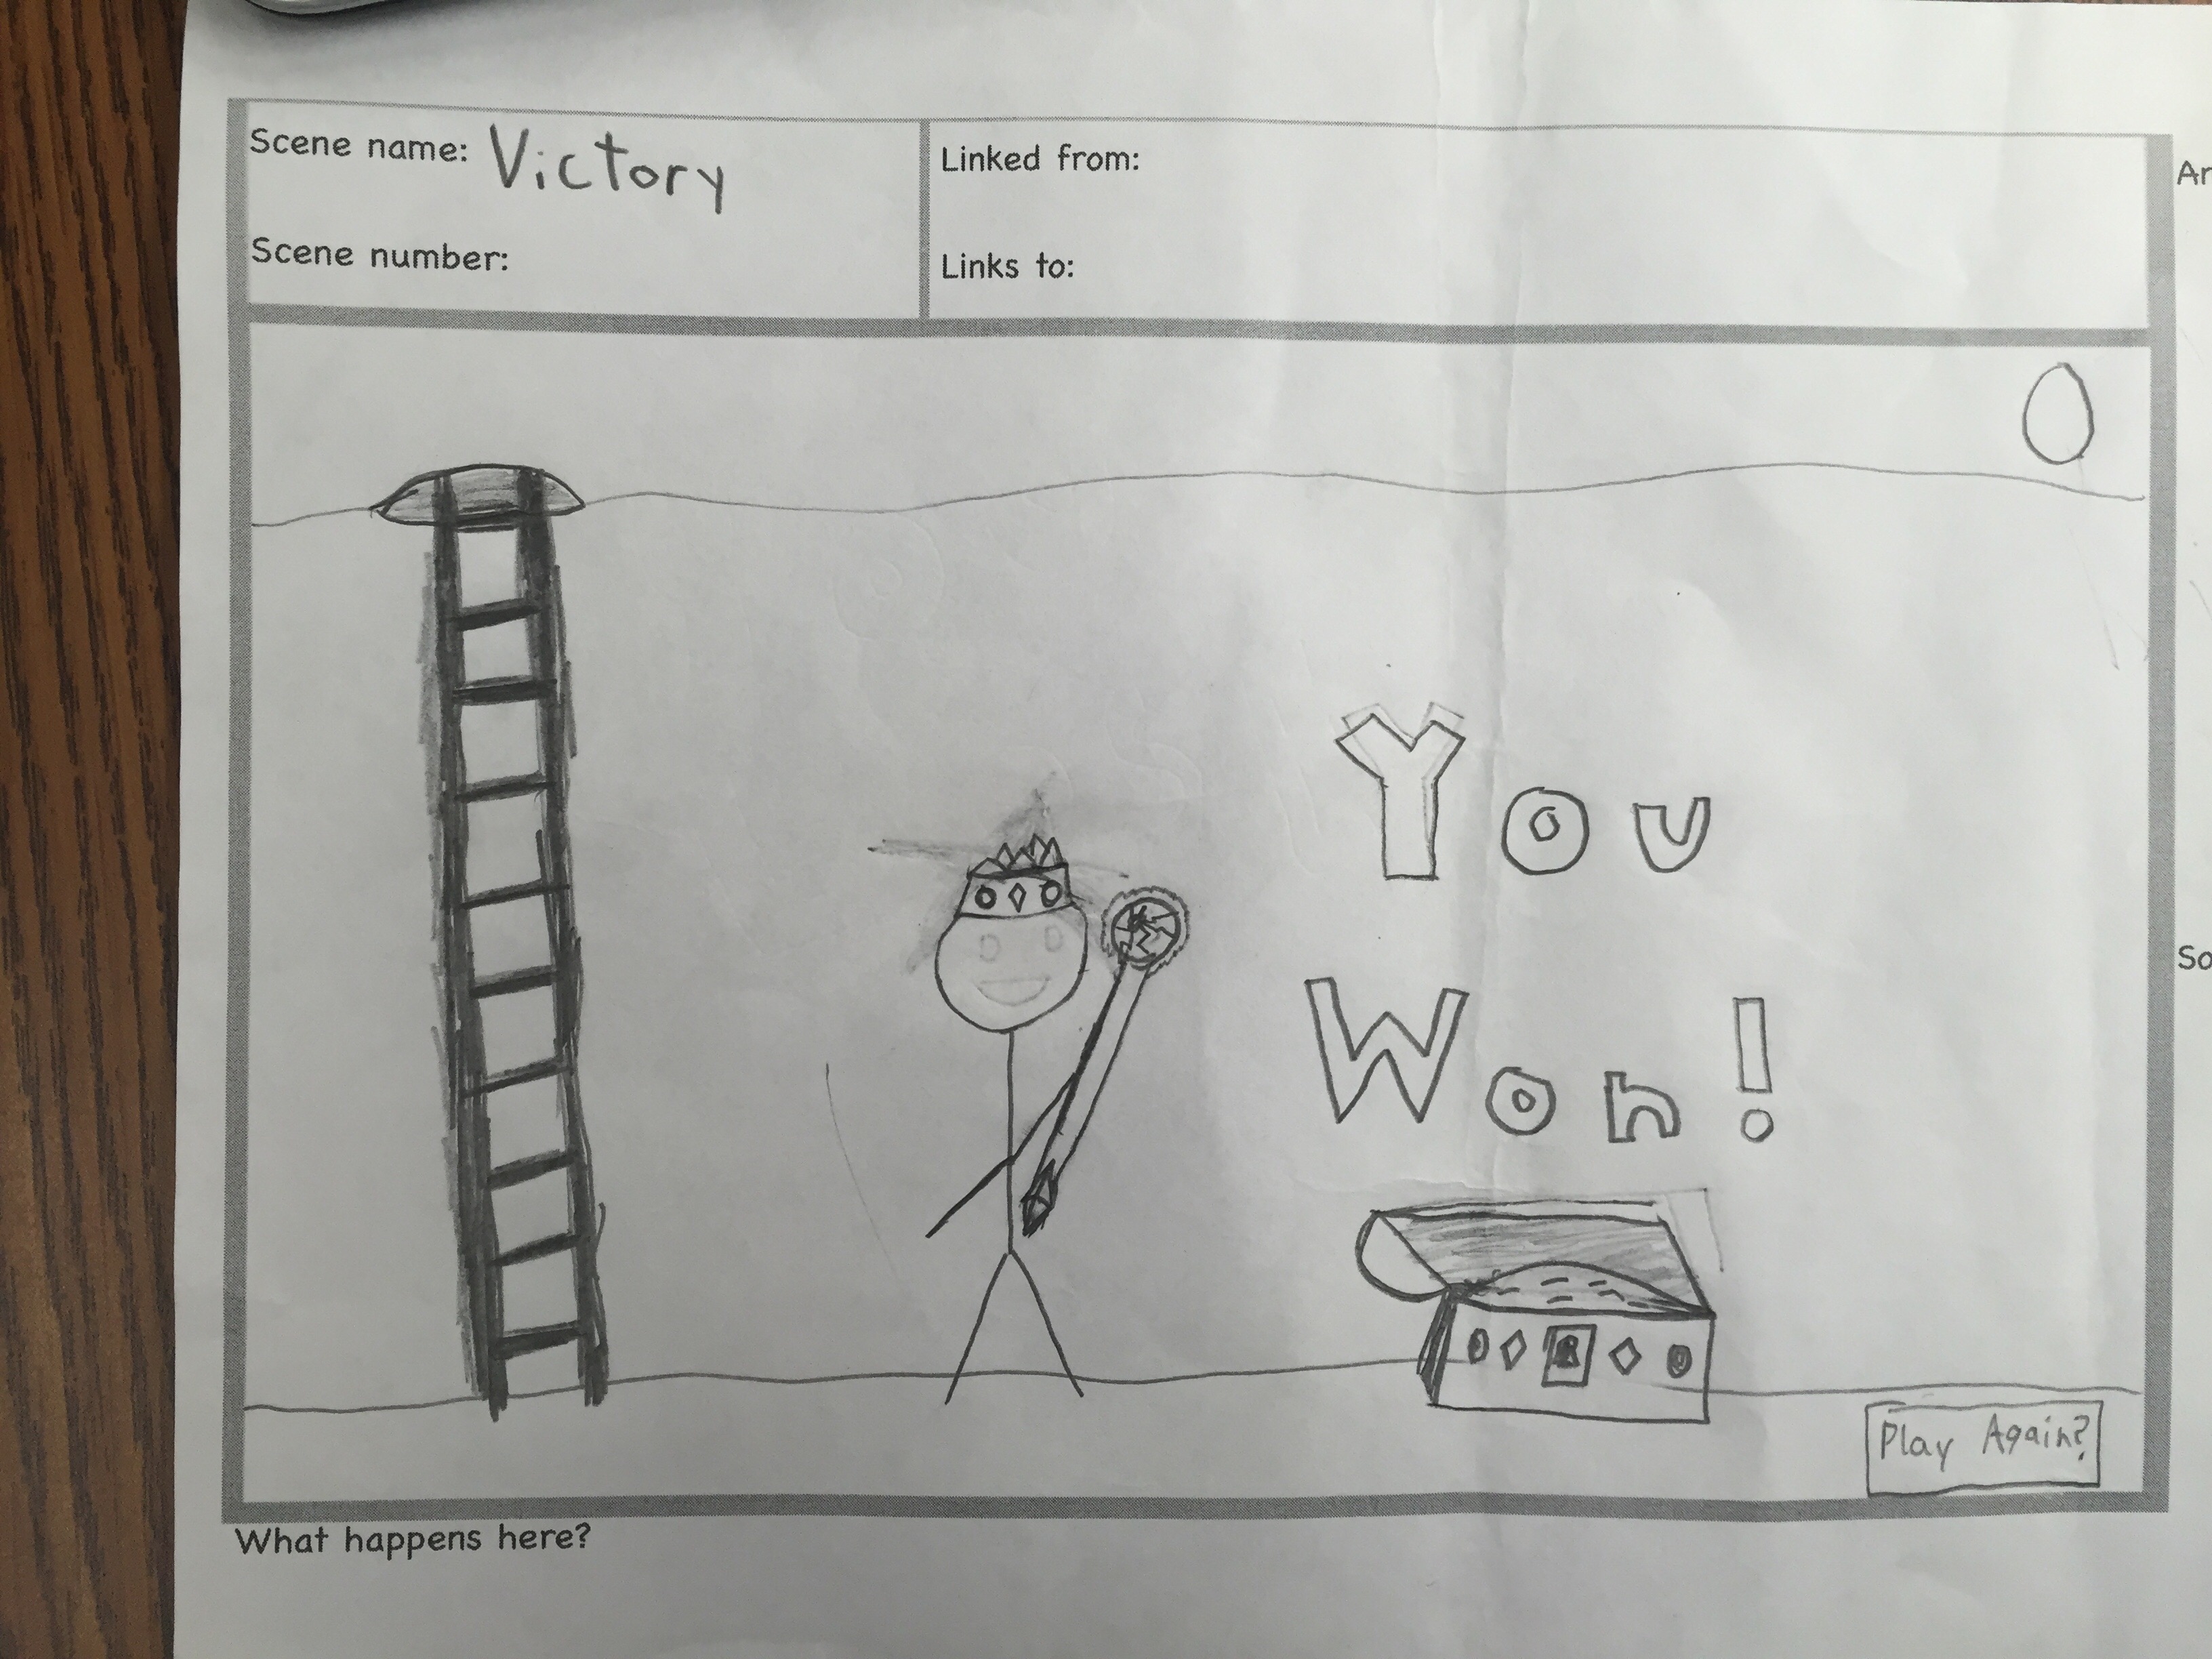 Scene name: Victory
Scene number:
Linked from:
Links to:
You
Won!
Play Again?
What happens here?